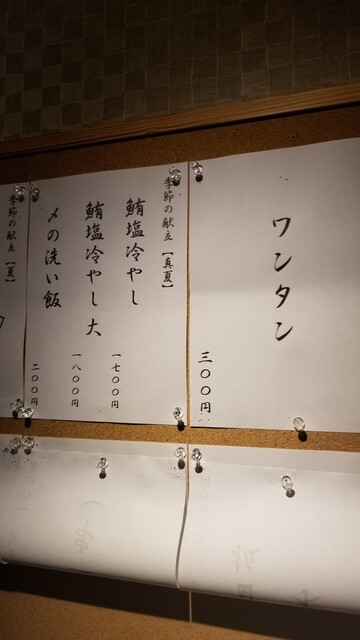 ワンタン
三〇〇円
季節の献立【真夏】
鮪塩冷やし
一七〇〇円
鮪塩冷やし 大
一八〇〇円
〆の洗い飯
二〇〇円
季節の献立【夏】